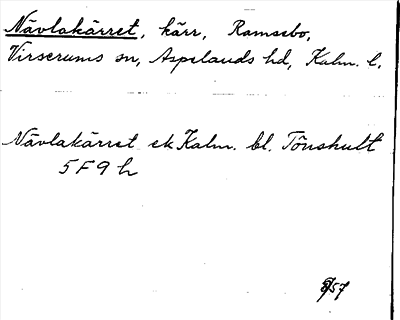 Nävlakärret, kärr, Ramsebo,
Virserums sn, Aspelands hd, Kalm. l.
Nävlakärret ek Kalm. bl. Tönshult
5 F 9 h
57